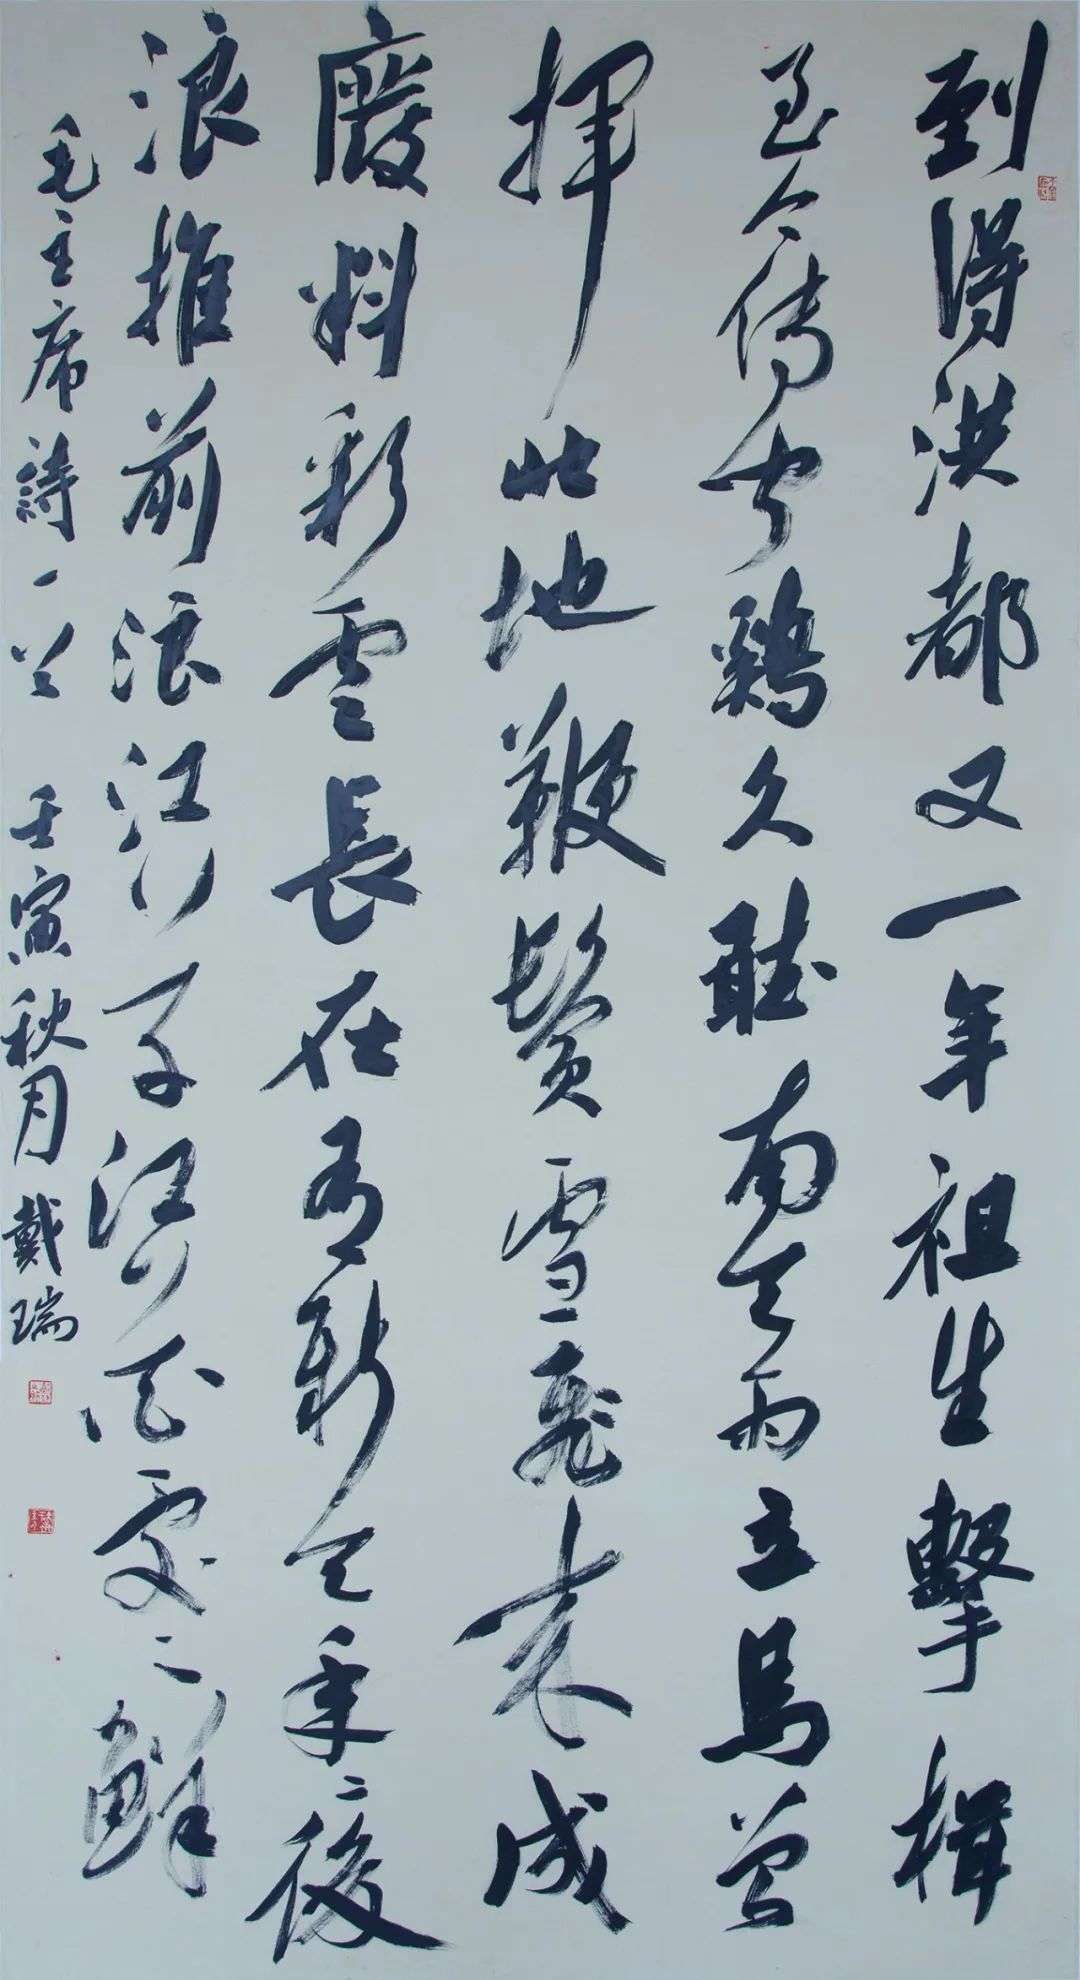 到得洪都又一年祖生擊楫
至今傳聞鷄久聽南天雨立馬曾
揮北地鞭鬢雪飛來成
廢料彩雲長在有新天年〻後
浪推前浪江草江花處〻鮮
毛主席詩一首 壬寅秋月 戴瑞